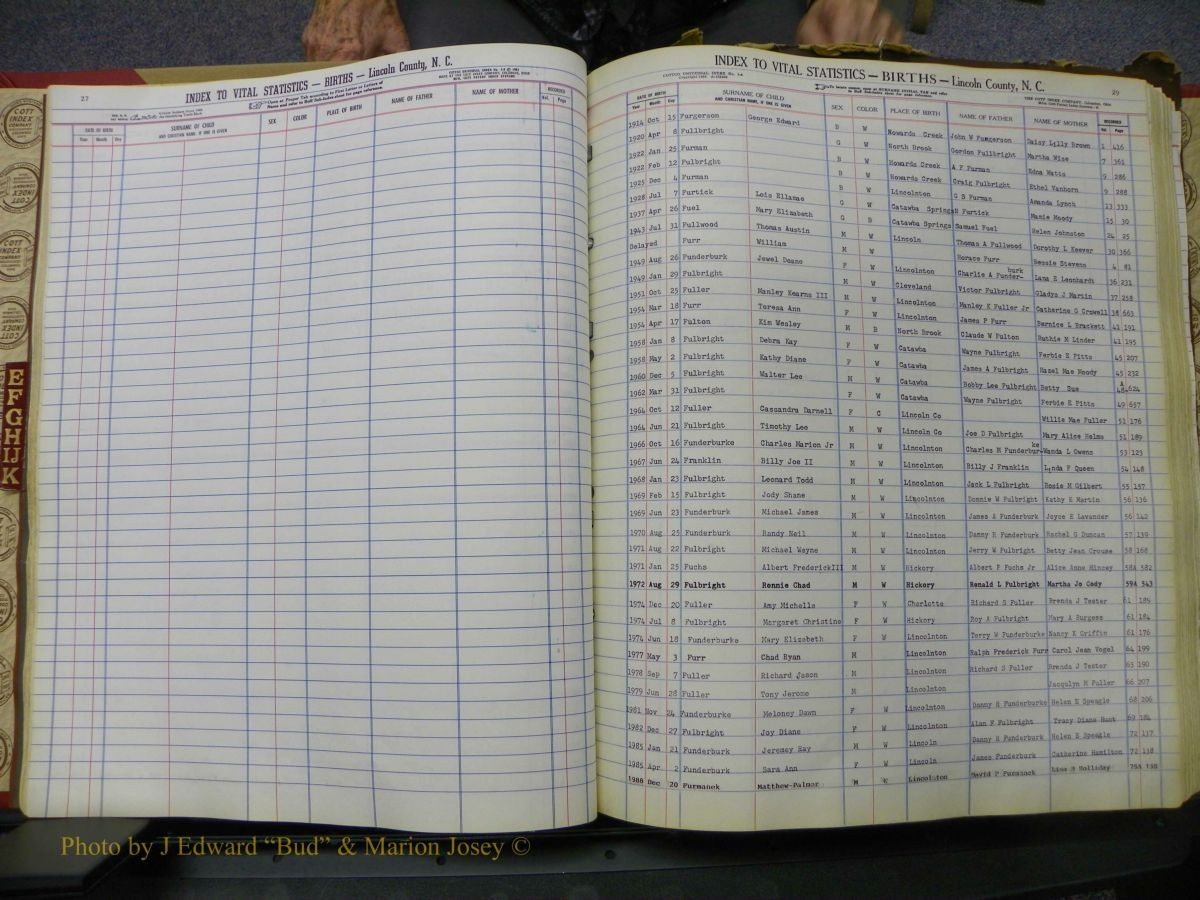 27
INDEX TO VITAL STATISTICS — BIRTHS — Lincoln County, N. C.
Open at Proper Tab according to First Letter or Letters of
Name and refer to Half Sub-Index sheet for page reference.
DATE OF BIRTH SURNAME OF CHILD SEX COLOR PLACE OF BIRTH NAME OF FATHER NAME OF MOTHER RECORDED
Year Month Day AND CHRISTIAN NAME, IF ONE IS GIVEN Vol. Page
COTT INDEX COMPANY
E
F
G
H
IJ
K
INDEX TO VITAL STATISTICS — BIRTHS — Lincoln County, N. C.
29
DATE OF BIRTH SURNAME OF CHILD SEX COLOR PLACE OF BIRTH NAME OF FATHER NAME OF MOTHER RECORDED
Year Month Day AND CHRISTIAN NAME, IF ONE IS GIVEN Vol. Page
1914 Oct 15 Furgerson George Edward B W Howards Creek John W Furgerson Daisy Lilly Brown 1 416
1920 Apr 8 Fullbright G W North Brook Gordon Fullbright Martha Wise 7 361
1922 Jan 25 Furman B W Howards Creek A F Furman Edna Watts 9 286
1922 Feb 12 Fulbright B W Howards Creek Craig Fulbright Ethel Vanhorn 9 288
1925 Dec 4 Furman B W Lincolnton G S Furman Amanda Lynch 13 333
1928 Jul 7 Furtick Lois Ellamae G W Catawba Springs Furtick Mamie Moody 15 30
1937 Apr 26 Fuel Mary Elizabeth G B Catawba Springs Samuel Fuel Helen Johnston 24 25
1943 Jul 31 Fullwood Thomas Austin M W Lincoln Thomas A Fullwood Dorothy L Keever 30 366
Delayed Furr William M W Horace Furr Bessie Stevens 4 81
1949 Aug 26 Funderburk Jewel Deane F W Lincolnton Charlie A Funder-burk Lana E Leonhardt 36 231
1949 Jan 29 Fulbright M W Cleveland Victor Fulbright Gladys J Martin 37 258
1951 Oct 25 Fuller Manley Kearns III M W Lincolnton Manley K Fuller Jr Catherine G Crowell 38 663
1954 Mar 18 Furr Teresa Ann F W Lincolnton James P Furr Bernice L Brackett 41 191
1954 Apr 17 Fulton Kim Wesley M B North Brook Claude W Fulton Ruthie M Linder 41 195
1958 Jan 8 Fulbright Debra Kay F W Catawba Wayne Fulbright Ferbie E Pitts 45 207
1958 May 2 Fulbright Kathy Diane F W Catawba James A Fulbright Hazel Mae Moody 45 232
1960 Dec 5 Fulbright Walter Lee M W Catawba Bobby Lee Fulbright Betty Sue 48A 624
1962 Mar 31 Fulbright F W Catawba Wayne Fulbright Ferbie E Pitts 49 657
1964 Oct 12 Fuller Cassandra Darnell F C Lincoln Co Willie Mae Fuller 51 176
1964 Jun 21 Fulbright Timothy Lee M W Lincoln Co Joe D Fulbright Mary Alice Helms 51 189
1966 Oct 16 Funderburke Charles Marion Jr M W Lincolnton Charles M Funderbur-ke Wanda L Owens 53 123
1967 Jun 24 Franklin Billy Joe II M W Lincolnton Billy J Franklin Lynda F Queen 54 148
1968 Jan 23 Fulbright Leonard Todd M W Lincolnton Jack L Fulbright Rosie M Gilbert 55 157
1969 Feb 15 Fulbright Jody Shane M W Lincolnton Donnie W Fulbright Kathy E Martin 56 136
1969 Jun 23 Funderburk Michael James M W Lincolnton James A Funderburk Joyce E Lavander 56 142
1970 Aug 25 Funderburk Randy Neil M W Lincolnton Danny R Funderburk Rachel G Duncan 57 139
1971 Aug 22 Fulbright Michael Wayne M W Lincolnton Jerry W Fulbright Betty Jean Crouse 58 168
1971 Jan 25 Fuchs Albert FrederickIII M W Hickory Albert F Fuchs Jr Alice Anne Mincey 58A 582
1972 Aug 29 Fulbright Ronnie Chad M W Hickory Ronald L Fulbright Martha Jo Cody 59A 543
1974 Dec 20 Fuller Amy Michelle F W Charlotte Richard S Fuller Brenda J Tester 61 185
1974 Jul 8 Fulbright Margaret Christine F W Hickory Roy A Fulbright Mary A Burgess 61 184
1974 Jun 18 Funderburke Mary Elizabeth F W Lincolnton Terry W Funderburke Nancy K Griffin 61 176
1977 May 3 Furr Chad Ryan M Lincolnton Ralph Frederick Furr Carol Jean Vogel 64 199
1978 Sep 7 Fuller Richard Jason M Lincolnton Richard S Fuller Brenda J Tester 65 190
1979 Jun 28 Fuller Tony Jerome M Lincolnton Jacqulyn M Fuller 66 207
1981 Nov 24 Funderburke Meloney Dawn F W Lincolnton Danny R Funderburke Helen E Speagle 68 206
1982 Dec 27 Fulbright Joy Diane F W Lincolnton Alan F Fulbright Tracy Diane Hunt 69 184
1985 Jan 21 Funderburk Jeremey Ray M W Lincoln Danny R Funderburk Helen E Speagle 72 137
1985 Apr 2 Funderburk Sara Ann F W Lincoln James Funderburk Catherine Hamilton 72 138
1988 Dec 20 Furmanek Matthew-Palmor M W Lincolnton David P Furmanek Lisa Holliday 75A 158
Photo by J Edward “Bud” & Marion Josey ©